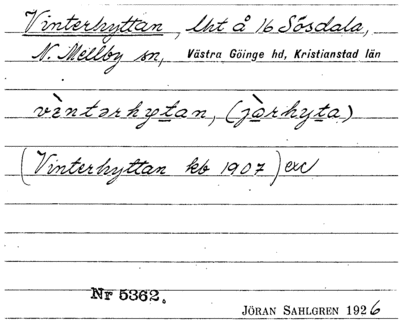 Vinterhyttan, lht å 16 Sösdala,
N. Mellby sn, Västra Göinge hd, Kristianstad län
vìntərhytan, (jə̀rhyta)
(Vinterhyttan kb 1907) exc
Nr 5362.
JÖRAN SAHLGREN 1926